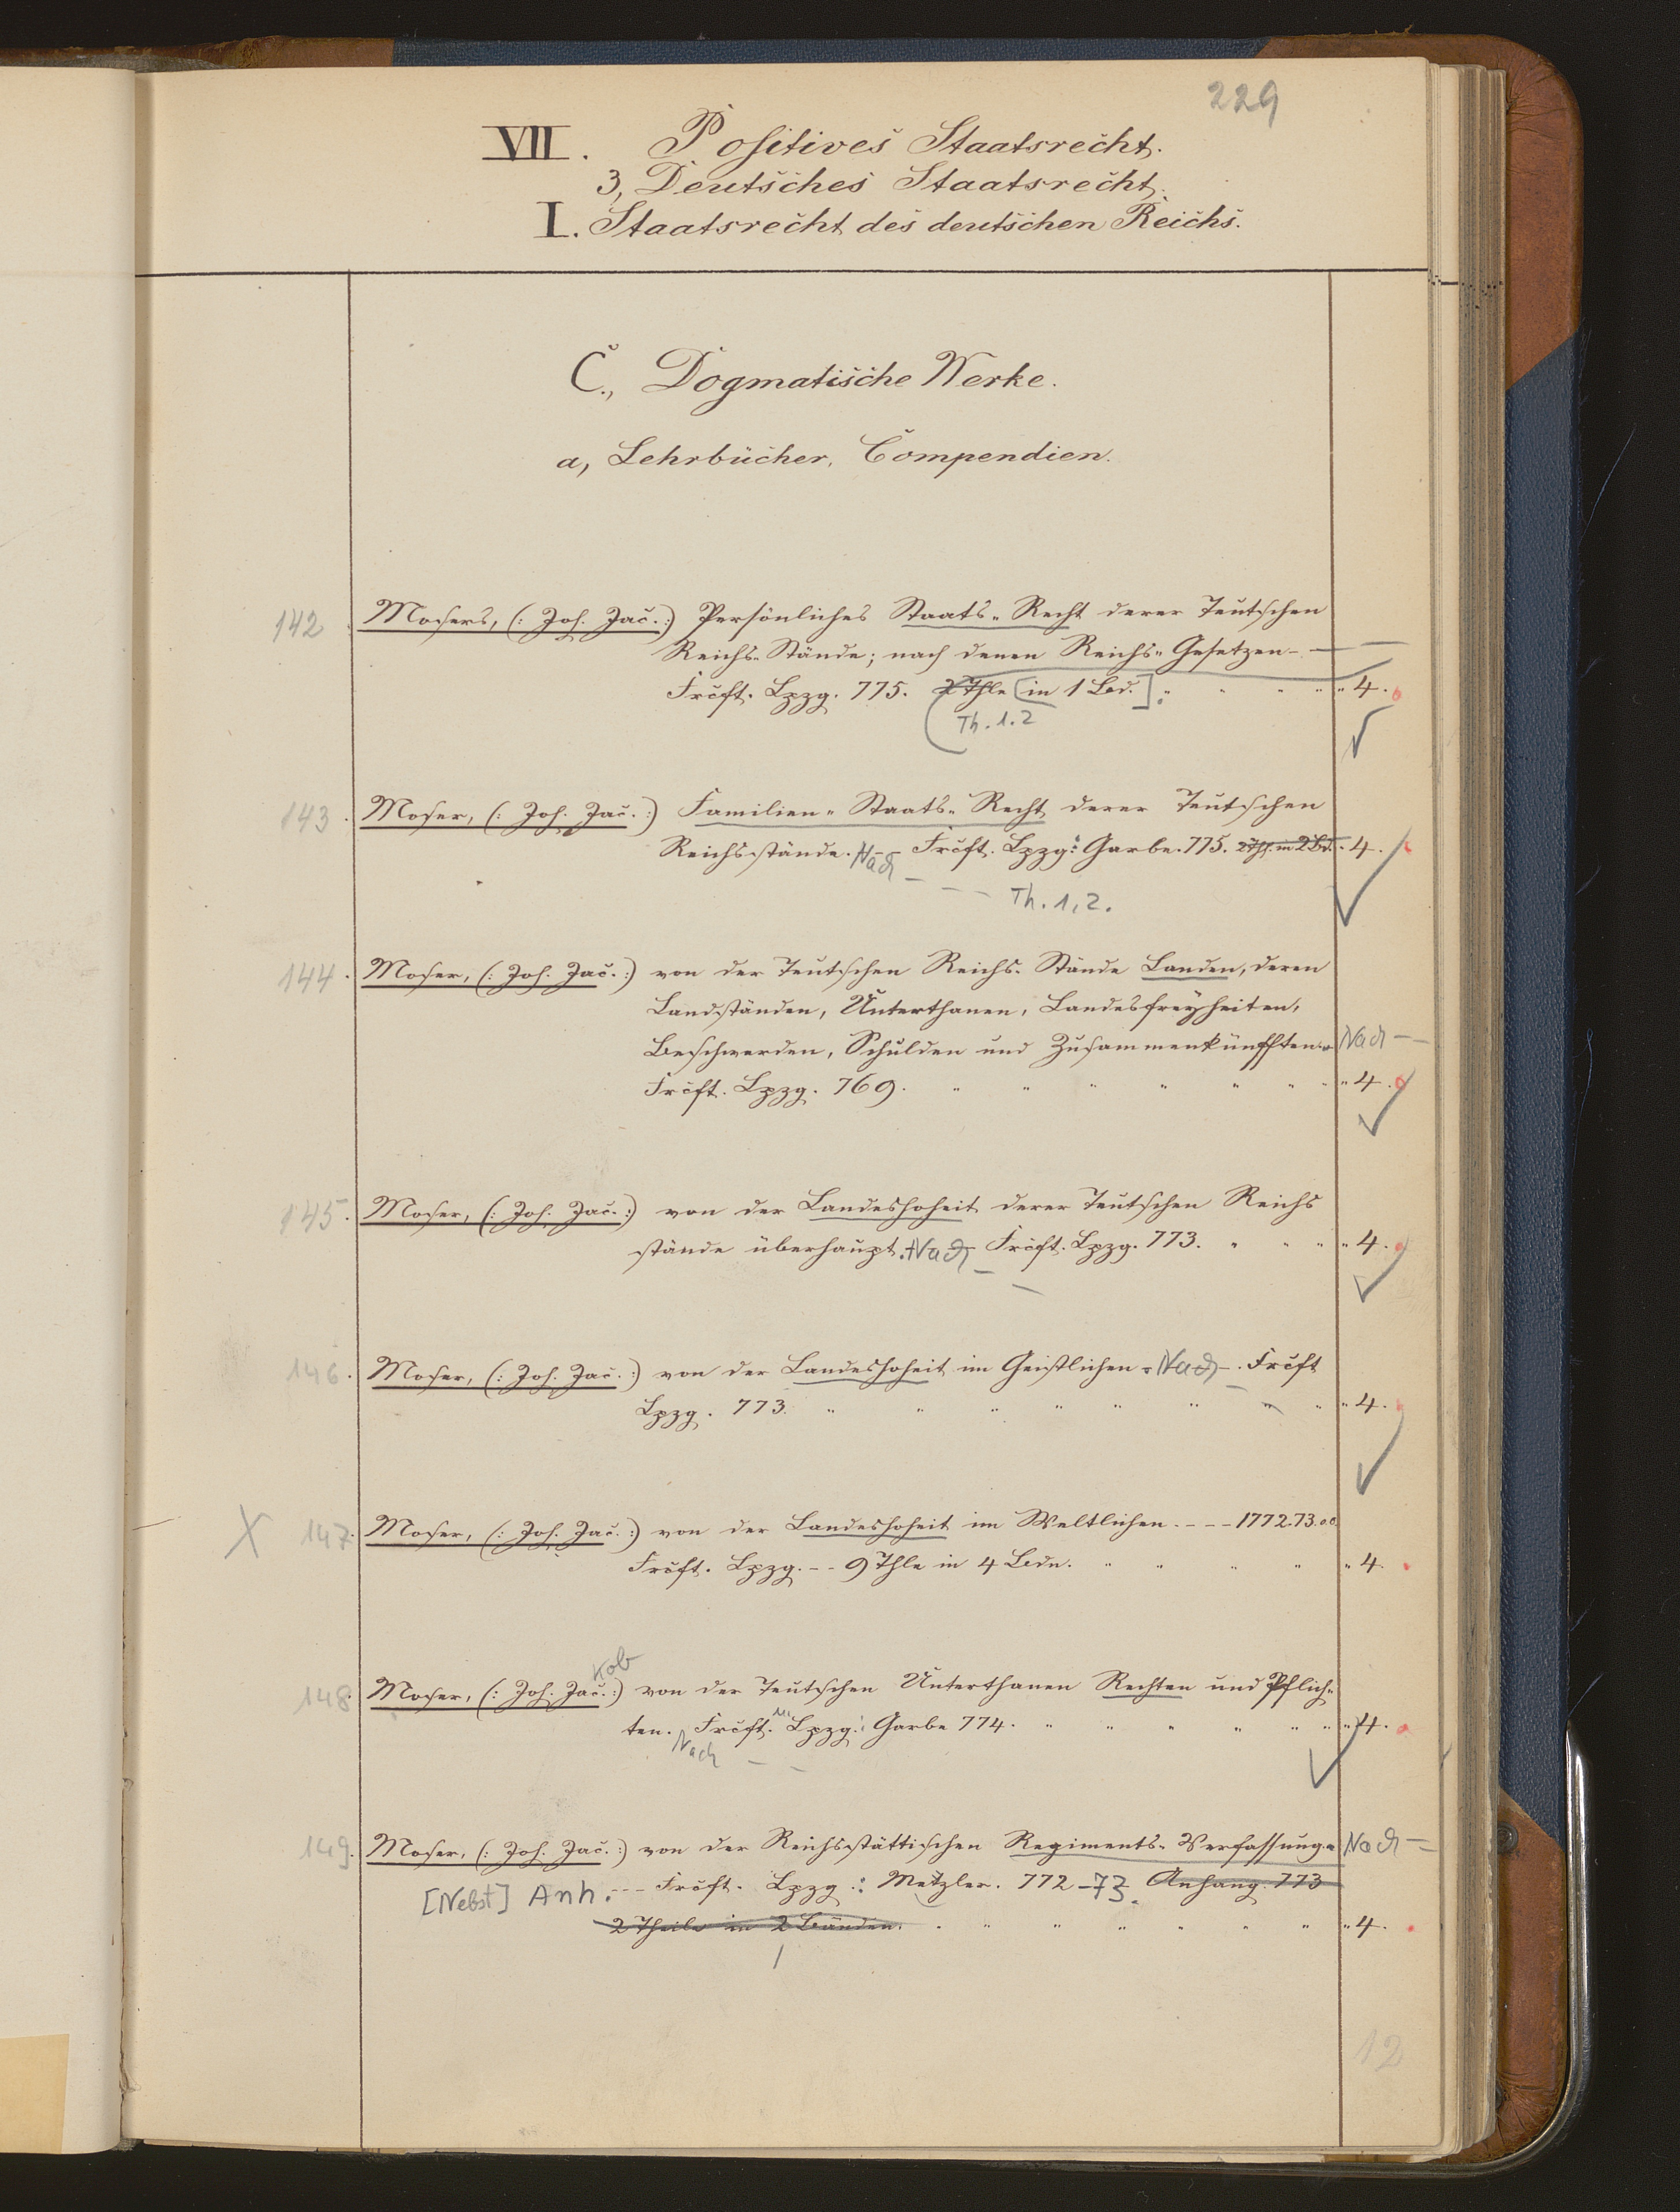 229
VII. Positives Staatsrecht.
3, Deutsches Staatsrecht.
I. Staatsrecht des deutschen Reichs.
C., Dogmatische Werke.
a, Lehrbücher, Compendien.
142 Mosers, (: Joh. Jac. :) Persönliches Staats-Recht derer Teutschen
Reichs-Stände; nach denen Reichs-Gesetzen -
Frcft. Lpzg. 775. 2 Thle [in 1 Bd.] " " " " " 4.
Th. 1.2
143. Moser, (: Joh. Jac. :) Familien-Staats-Recht derer Teutschen
Reichsstände. Nach - Frcft. Lpzg: Garbe. 775. 2 Thl. in 2 Bd. " 4.
Th. 1,2.
144. Moser, (: Joh. Jac. :) von der Teutschen Reichs-Stände Landen, deren
Landständen, Unterthanen, Landesfreyheiten,
Beschwerden, Schulden und Zusammenkünfften. Nach -
Frcft. Lpzg. 769. " " " " " " " " 4.
145. Moser, (: Joh. Jac. :) von der Landeshoheit derer Teutschen Reichs
stände überhaupt. Nach - Frcft. Lpzg. 773. " " " " 4.
146. Moser, (: Joh. Jac. :) von der Landeshoheit im Geistlichen. Nach -. Frcft
Lpzg. 773. " " " " " " " " " 4.
X 147. Moser, (: Joh. Jac. :) von der Landeshoheit im Weltlichen. - - - 1772.73.
Frcft. Lpzg. - - 9 Thle in 4 Bdn. " " " " " 4.
Kob
148. Moser, (: Joh. Jac. :) von der Teutschen Unterthanen Rechten und Pflich-
ten. Frcft. u. Lpzg: Garbe 774. " " " " " " " 4.
Nach - -
149. Moser, (: Joh. Jac. :) von der Reichsstättischen Regiments-Verfassung. Nach -
[Nebst] Anh. - - - Frcft. Lpzg.: Metzler. 772-73. Anhang. 773
2 Theile in 2 Bänden. " " " " " " " 4.
1
12